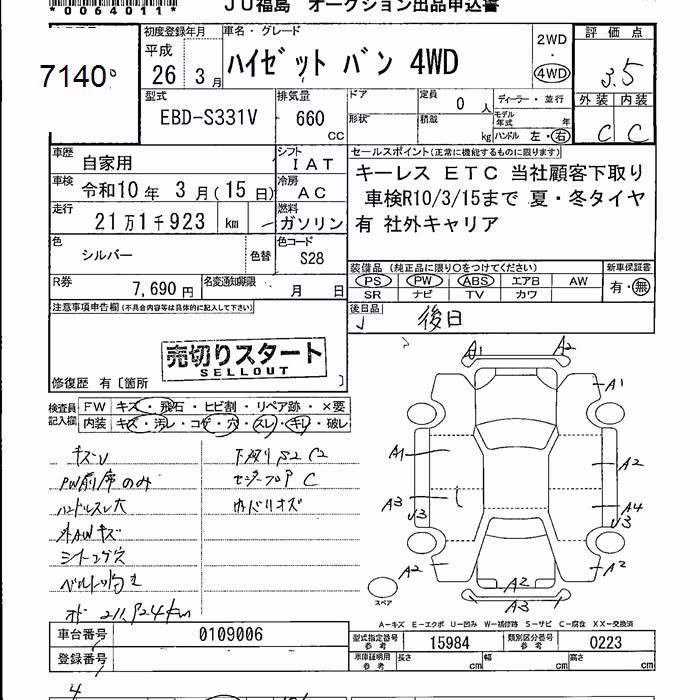 *0064011*
JU福島 オークション出品申込書
7140
初度登録年月
平成
26 3月
車名・グレード
ハイゼット バン 4WD
2WD
・
4WD
評価点
3.5
外装 内装
C C
型式
EBD-S331V
排気量
660
cc
ドア
形状
定員
0 人
積載
kg
ディーラー・並行
モデル年式 年
ハンドル 左・右
車歴
自家用
シフト
IAT
車検
令和10年 3月(15日)
冷房
AC
走行
21万1千923 km
燃料
ガソリン
色
シルバー
色替
色コード
S28
R券
7,690円
名変通知期限
月 日
セールスポイント(正常に機能するものに限ります)
キーレス ETC 当社顧客下取り
車検R10/3/15まで 夏・冬タイヤ
有 社外キャリア
装備品 (純正品に限り○をつけてください)
PS PW ABS エアB AW
SR ナビ TV カワ
新車保証書
有・無
後日品
後日
注意事項申告欄(不具合内容等は具体的に記入して下さい)
売切りスタート
SELLOUT
修復歴 有〔箇所 〕
検査員記入欄
FW キズ・飛石・ヒビ割・リペア跡・×要
内装 キズ・汚レ・コゲ・穴・スレ・キレ・破レ
キズU
PW前席のみ
ハンドルスレ大
外AWキズ
下廻りS2 C2
C
内バリキズ
A1 A2
A1
A1
A2
A3
U3
A4
U3
A2
A2
A2
A3
スペア
A-キズ E-エクボ U-凹み W-補修跡 S-サビ C-腐食 XX-交換済
車台番号 0109006
登録番号
型式指定番号 参考 15984
類別区分番号 参考 0223
車庫証明用 参考
長さ cm
幅 cm
高さ cm
4